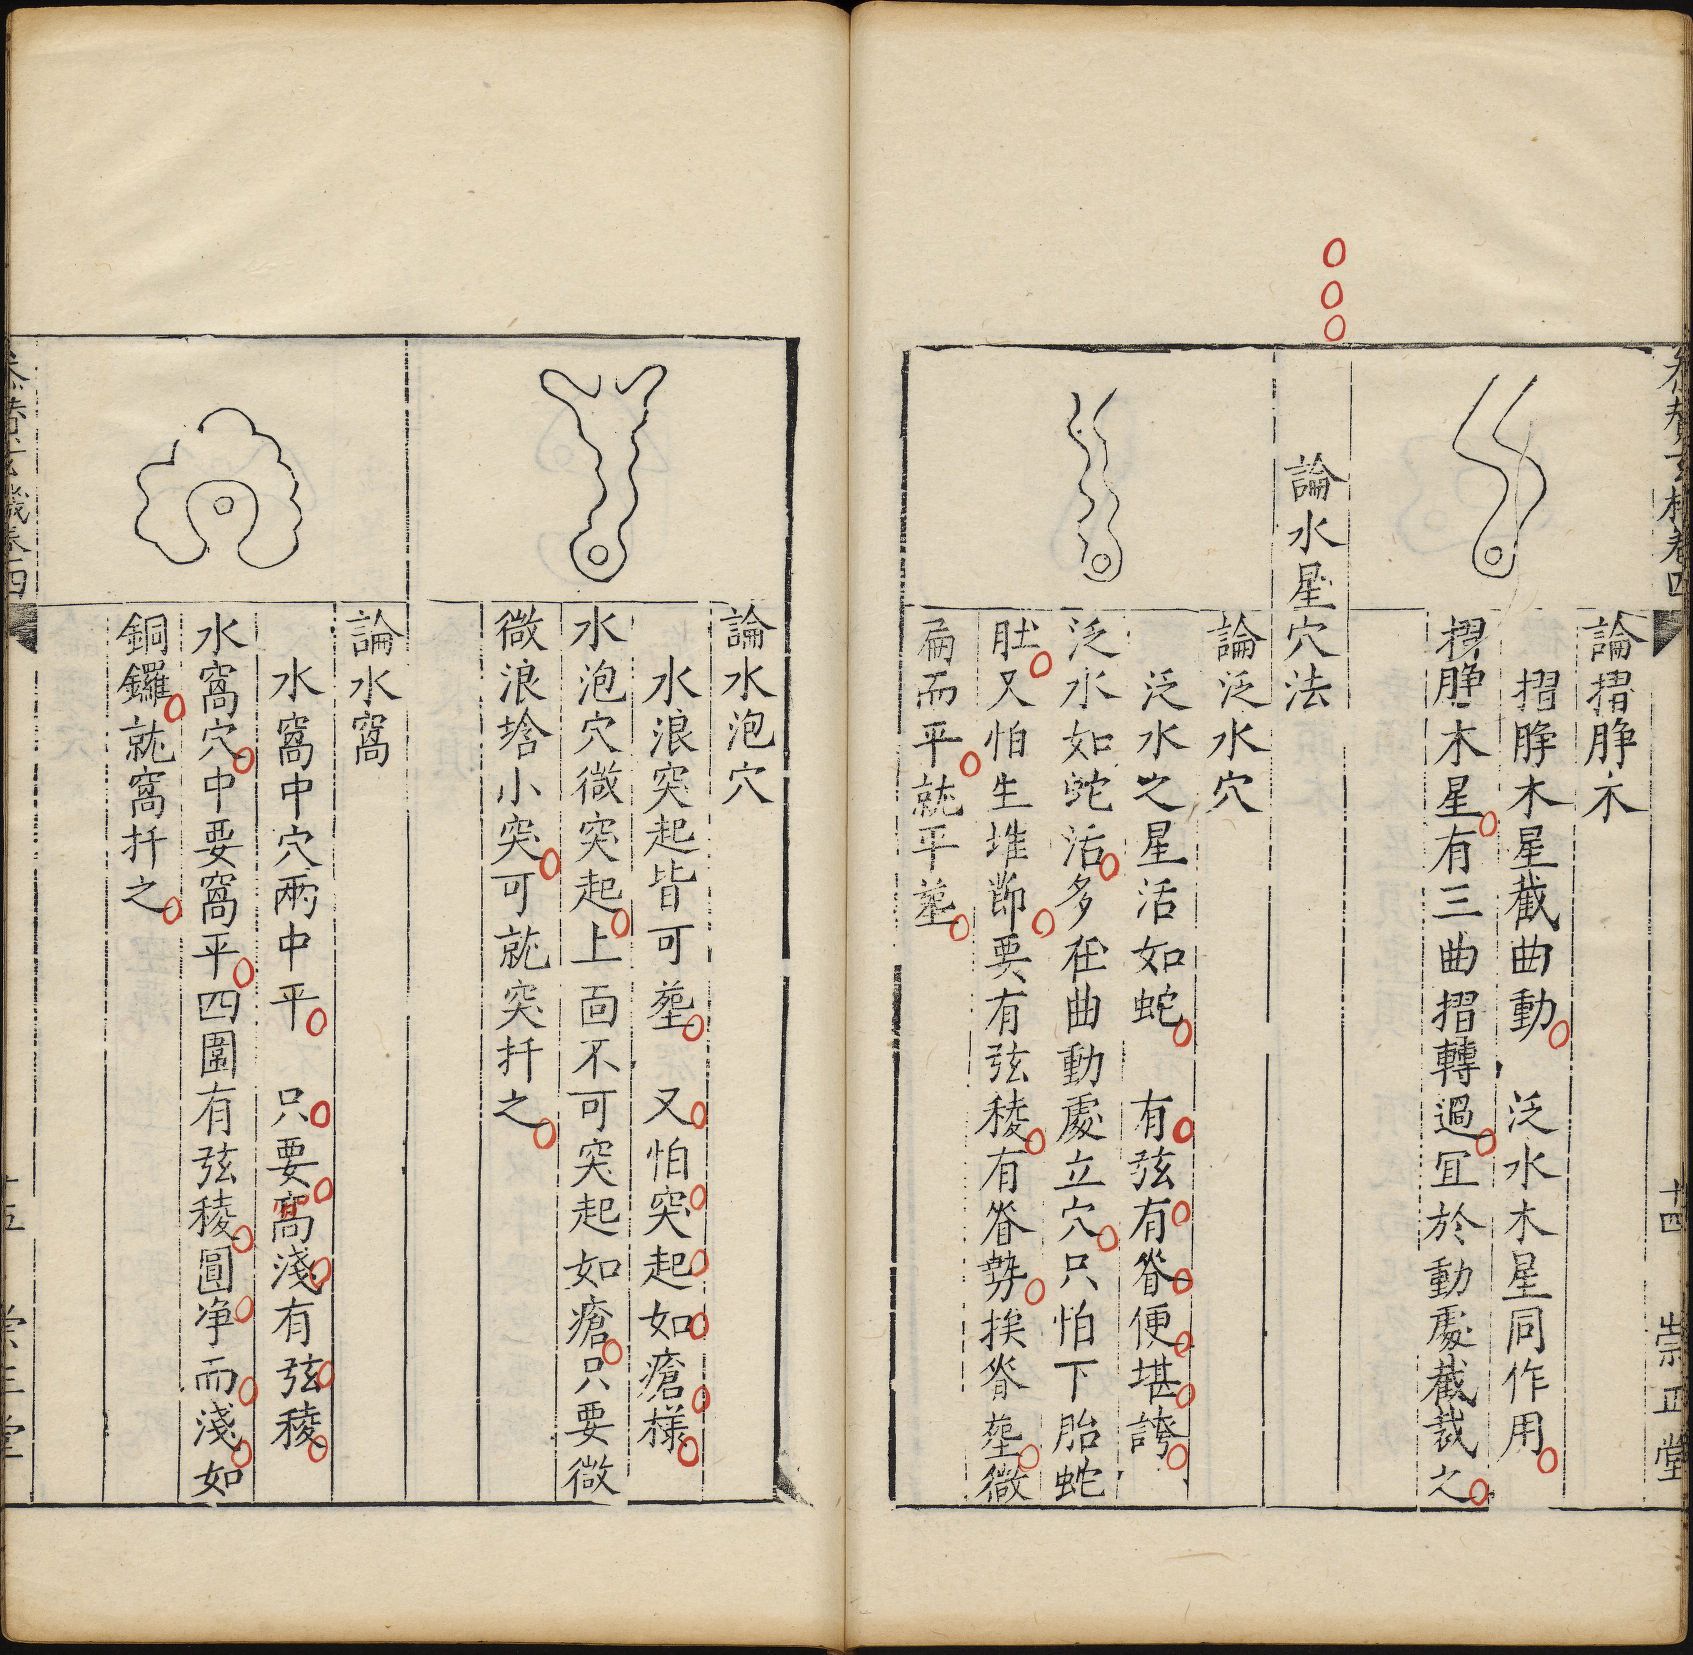 論摺脖木
摺脖木星截曲動　泛水木星同作用
摺脖木星有三曲摺轉過宜於動處截裁之
論水星穴法
論泛水穴
泛水之星活如蛇　有弦有脊便堪誇
泛水如蛇活多在曲動處立穴只怕下胎蛇
肚又怕生堆節要有弦稜有脊勢挨脊塟微
扁而平就平塟
十四　崇正堂
論水泡穴
水浪突起皆可塟　又怕突起如瘡樣
水泡穴微突起上面不可突起如瘡只要微
微浪墖小突可就突扦之
論水窩
水窩中穴兩中平　只要窩淺有弦稜
水窩穴中要窩平四圍有弦稜圓净而淺如
銅鑼就窩扦之